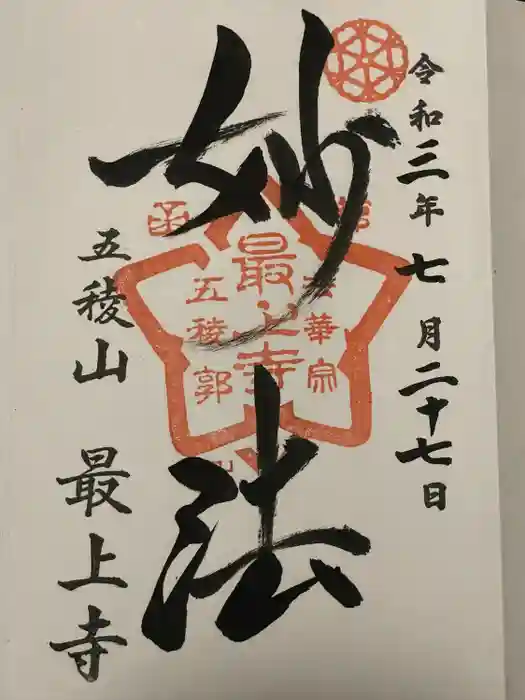 令和三年七月二十七日
妙法
五稜山 最上寺
最上寺
五稜郭
法華宗
函館